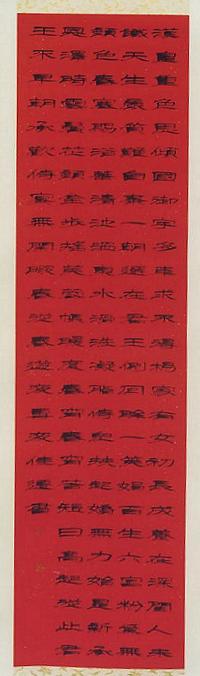 漢皇重色思傾國御宇多年求不得楊家有女初長成養在深閨人未
識天生麗質難自棄一朝選在君王側回眸一笑百媚生六宮粉黛無
顏色春寒賜浴華清池溫泉水滑洗凝脂侍兒扶起嬌無力始是新承
恩澤時雲鬢花顏金步搖芙蓉帳暖度春宵春宵苦短日高起從此君
王不早朝承歡侍宴無閒暇春從春遊夜專夜佳書